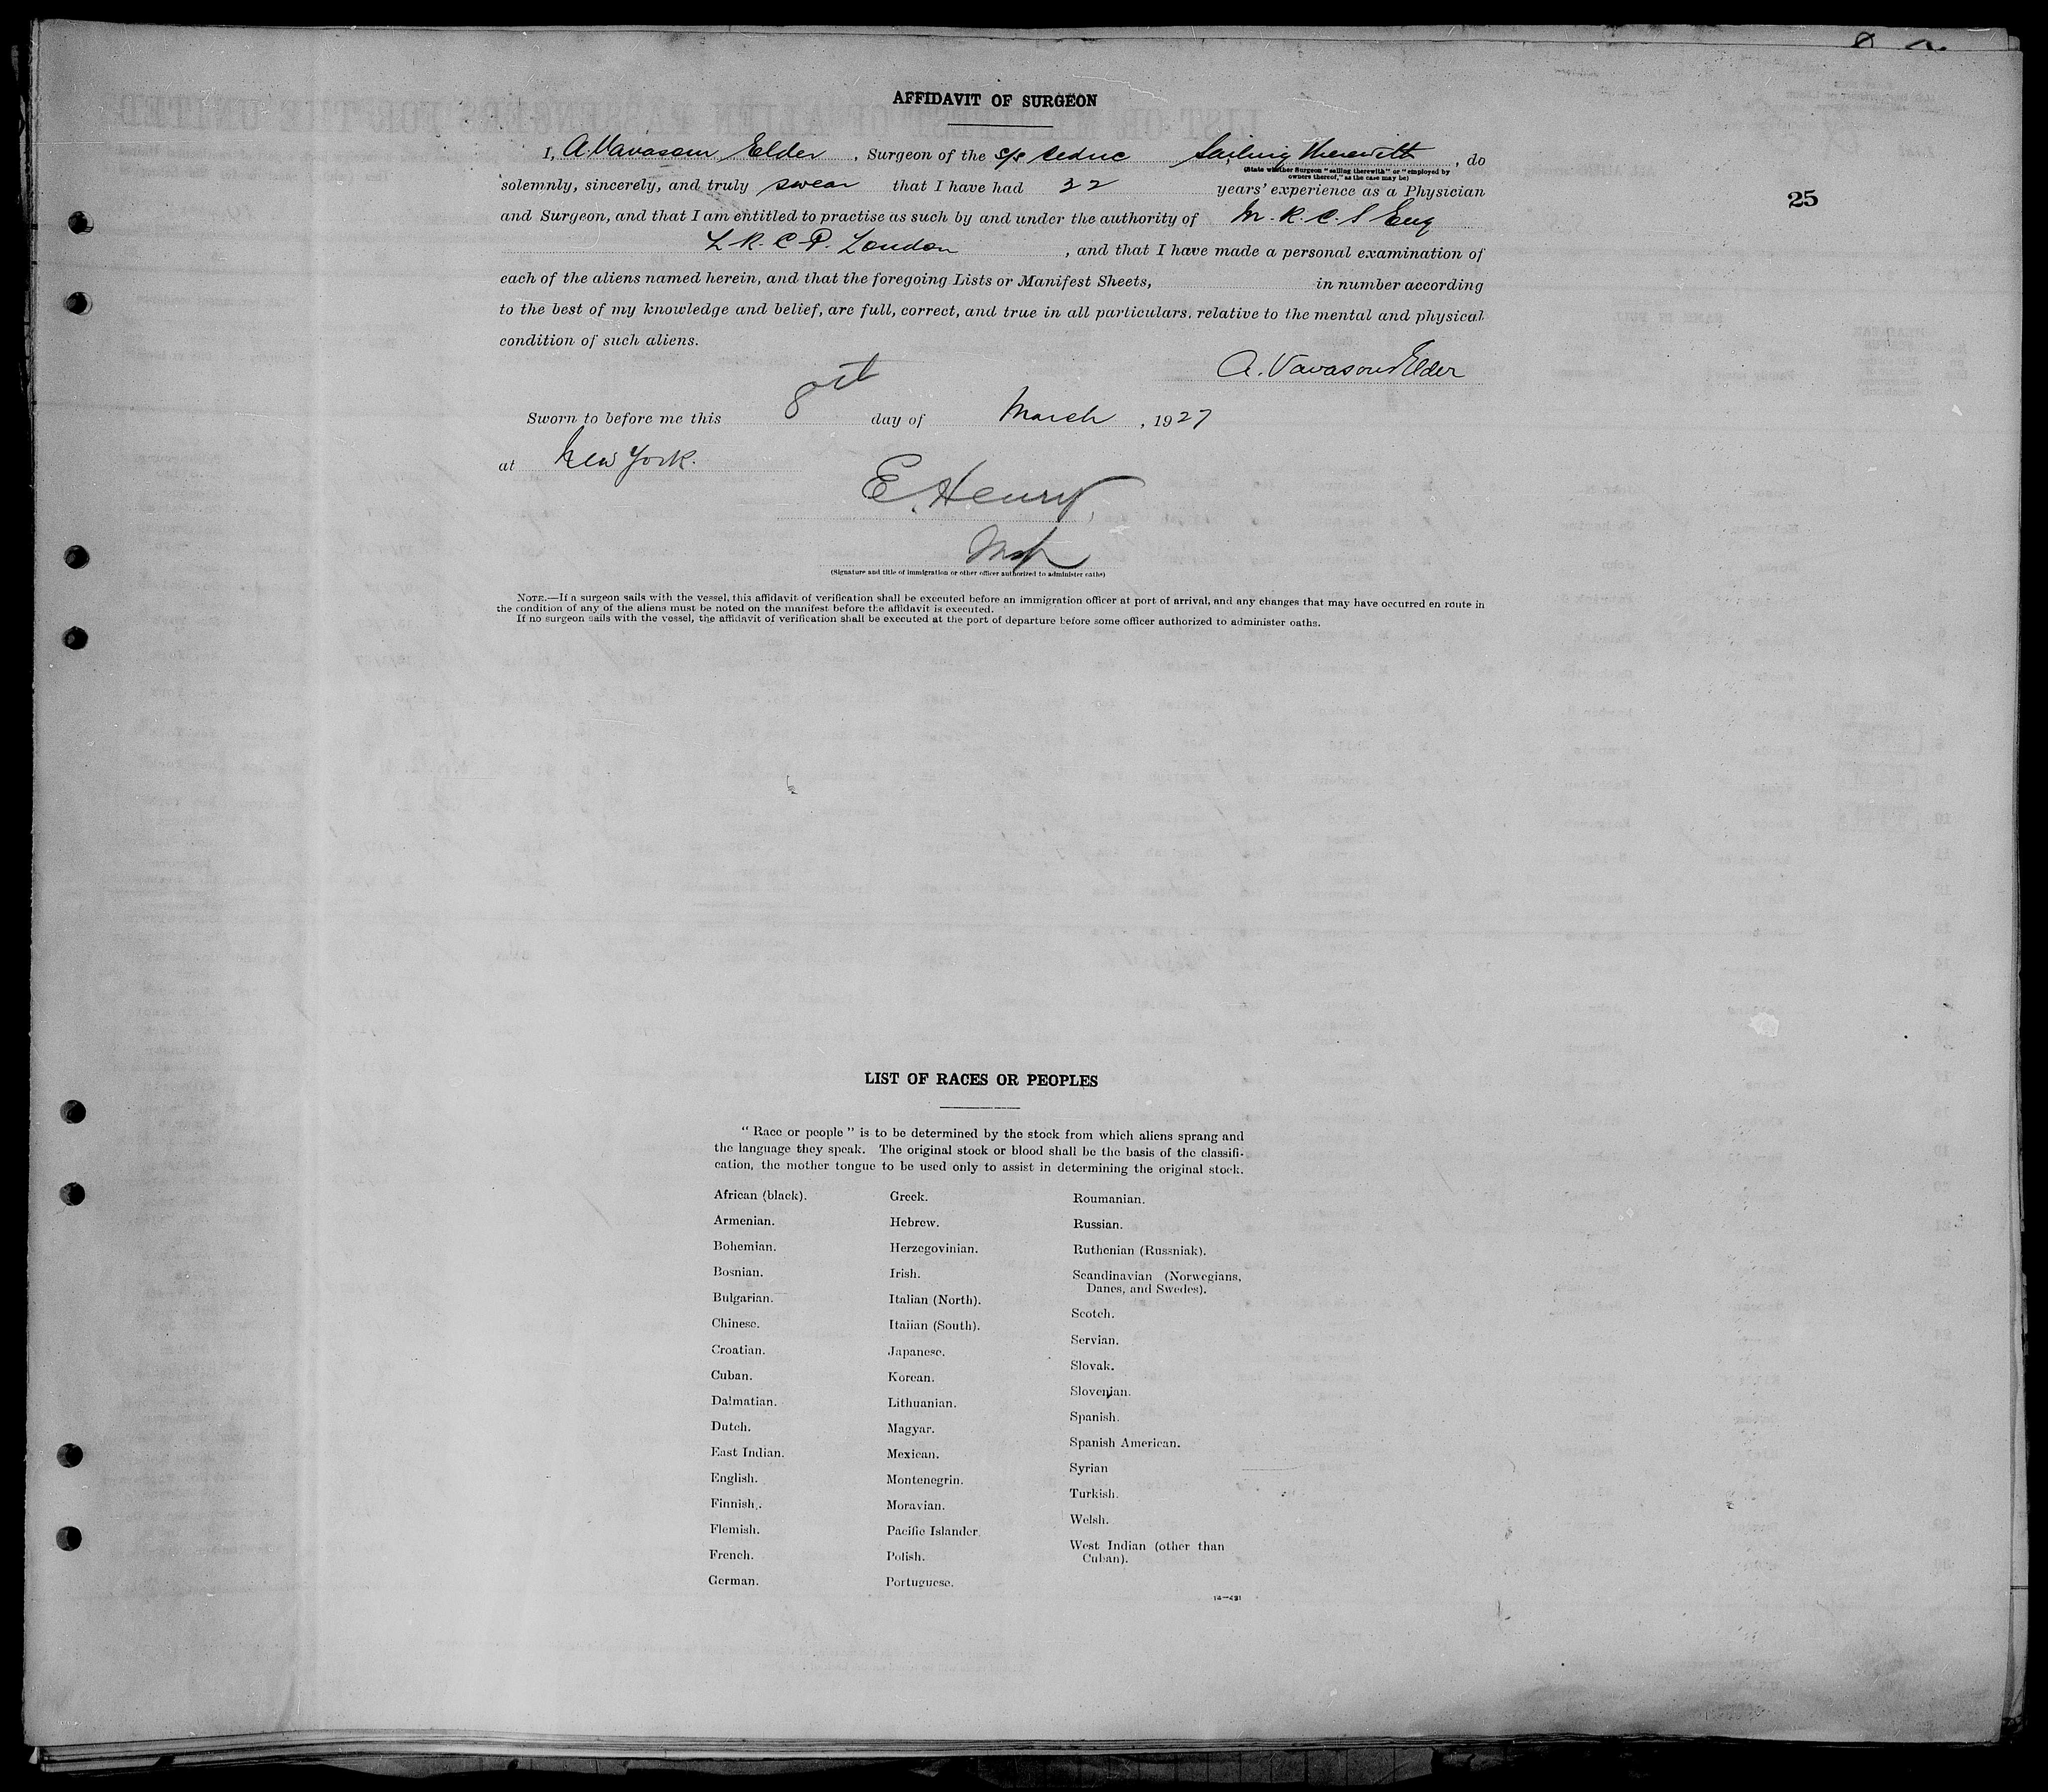 AFFIDAVIT OF SURGEON
I, A. Vavasour Elder, Surgeon of the S/S Cedric Sailing therewith, do
(State whether Surgeon "sailing therewith" or "employed by
owners thereof," as the case may be)
solemnly, sincerely, and truly swear that I have had 32 years' experience as a Physician
25
and Surgeon, and that I am entitled to practise as such by and under the authority of M.R.C.S Eng
L.R.C.P. London, and that I have made a personal examination of
each of the aliens named herein, and that the foregoing Lists or Manifest Sheets, in number according
to the best of my knowledge and belief, are full, correct, and true in all particulars, relative to the mental and physical
condition of such aliens.
A. Vavasour Elder
Sworn to before me this 8th day of March, 1927
at New York.
E. Henry
(Signature and title of immigration or other officer authorized to administer oaths)
NOTE.—If a surgeon sails with the vessel, this affidavit of verification shall be executed before an immigration officer at port of arrival, and any changes that may have occurred en route in
the condition of any of the aliens must be noted on the manifest before the affidavit is executed.
If no surgeon sails with the vessel, the affidavit of verification shall be executed at the port of departure before some officer authorized to administer oaths.
LIST OF RACES OR PEOPLES
"Race or people" is to be determined by the stock from which aliens sprang and
the language they speak. The original stock or blood shall be the basis of the classifi-
cation, the mother tongue to be used only to assist in determining the original stock.
African (black).
Armenian.
Bohemian.
Bosnian.
Bulgarian.
Chinese.
Croatian.
Cuban.
Dalmatian.
Dutch.
East Indian.
English.
Finnish.
Flemish.
French.
German.
Greek.
Hebrew.
Herzegovinian.
Irish.
Italian (North).
Italian (South).
Japanese.
Korean.
Lithuanian.
Magyar.
Mexican.
Montenegrin.
Moravian.
Pacific Islander.
Polish.
Portuguese.
Roumanian.
Russian.
Ruthenian (Russniak).
Scandinavian (Norwegians,
Danes, and Swedes).
Scotch.
Servian.
Slovak.
Slovenian.
Spanish.
Spanish American.
Syrian
Turkish.
Welsh.
West Indian (other than
Cuban).